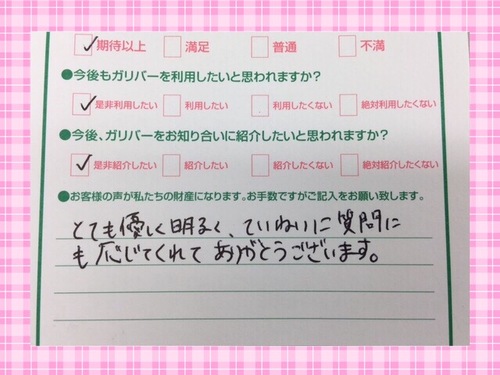 期待以上 満足 普通 不満
●今後もガリバーを利用したいと思われますか?
是非利用したい 利用したい 利用したくない 絶対利用したくない
●今後、ガリバーをお知り合いに紹介したいと思われますか?
是非紹介したい 紹介したい 紹介したくない 絶対紹介したくない
●お客様の声が私たちの財産になります。お手数ですがご記入をお願い致します。
とても優しく明るく、ていねいに質問に
も応じてくれてありがとうございます。